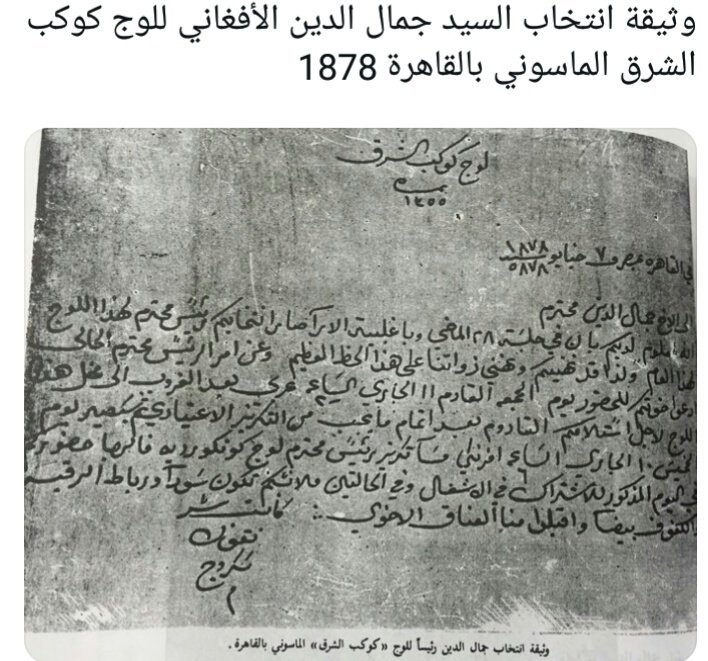 وثيقة انتخاب السيد جمال الدين الأفغاني للوج كوكب
الشرق الماسوني بالقاهرة 1878
لوج كوكب الشرق
نمره
١٣٥٥
في القاهره بمصر في ٧ جنايو سنة ١٨٧٨ / ٥٨٧٨
الى الاخ جمال الدين المحترم
انه معلوم لديكم بان في جلسة ٢٨ الماضي وباغلبية الاراء صار انتخابكم رئيس محترم لهذا اللوج
لهذا العام ولذا قد نهنيكم ونهني ذواتنا على هذا الحظ العظيم وعن امر الرئيس محترم الحالي
ادعو اخوتكم للحضور يوم الجمعه القادم ١١ الجاري الساعه عربي بعد الغروب الى محفل هذا
اللوج لاجل استلامكم القادوم بعد اتمام ما يجب من التكريز الاعتيادي ثم سيصير يوم
الخميس ١٠ الجاري الساعه افرنكي مساء تكريز رئيس محترم لوج كونكورديه فالرجا حضوركم
في اليوم المذكور للاشتراك في الاشغال وفي الحالتين ملابسكم تكون سوداء ورباط الرقبه
والكفوف بيضا واقبلوا منا العناق الاخوي
كاتب سر
نقولا
سكروج
وثيقة انتخاب جمال الدين رئيساً للوج «كوكب الشرق» الماسوني بالقاهرة .